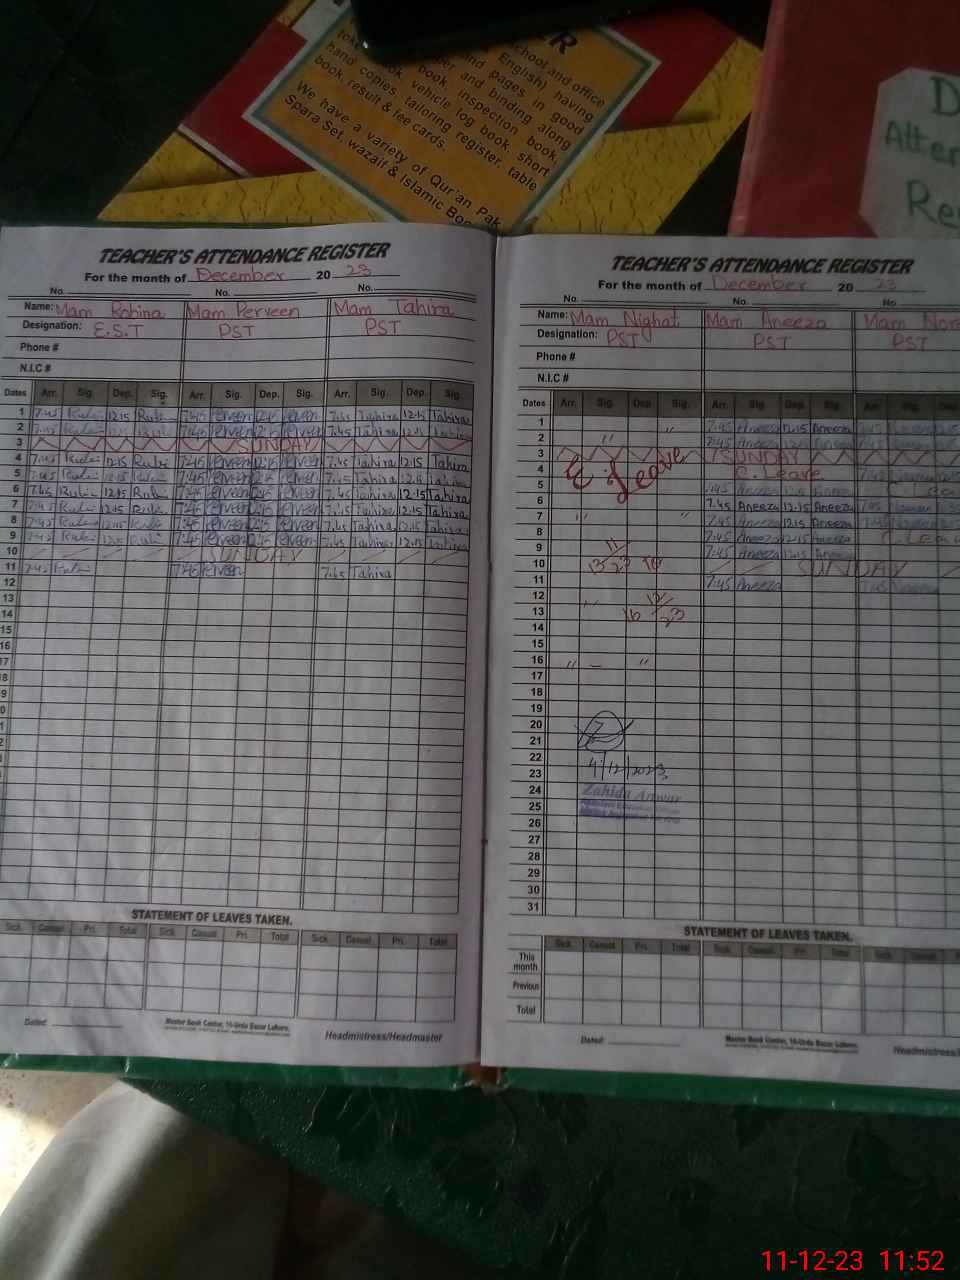 ER
chool and office
English) having
and pages in good
er and binding along
book, inspection book,
book, vehicle log book, short
hand copies, tailoring register, table
book, result & fee cards.
We have a variety of Qur'an Pak
Spara Set, wazaif & Islamic Boo
D
Atten
Re
TEACHER'S ATTENDANCE REGISTER
For the month of December 20 23
No. No. No.
Name: Mam Robina Mam Perveen Mam Tahira
Designation: E.S.T PST PST
Phone #
N.I.C #
Dates Arr. Sig. Dep. Sig. Arr. Sig. Dep. Sig. Arr. Sig. Dep. Sig.
1 7:45 Rubi 12:15 Rubi 7:45 Perveen 12:15 Perveen 7:45 Tahira 12:15 Tahira
2 7:45 Rubi 12:15 Rubi 7:45 Perveen 12:15 Perveen 7:45 Tahira 12:15 Tahira
3 SUNDAY
4 7:45 Rubi 12:15 Rubi 7:45 Perveen 12:15 Perveen 7:45 Tahira 12:15 Tahira
5 7:45 Rubi 12:15 Rubi 7:45 Perveen 12:15 Perveen 7:45 Tahira 12:15 Tahira
6 7:45 Rubi 12:15 Rubi 7:45 Perveen 12:15 Perveen 7:45 Tahira 12:15 Tahira
7 7:45 Rubi 12:15 Rubi 7:45 Perveen 12:15 Perveen 7:45 Tahira 12:15 Tahira
8 7:45 Rubi 12:15 Rubi 7:45 Perveen 12:15 Perveen 7:45 Tahira 12:15 Tahira
9 7:45 Rubi 12:15 Rubi 7:45 Perveen 12:15 Perveen 7:45 Tahira 12:15 Tahira
10 SUNDAY
11 7:45 Rubi 7:45 Perveen 7:45 Tahira
12
13
14
15
16
17
18
9
0
1
2
STATEMENT OF LEAVES TAKEN.
Sick. Casual. Pri. Total Sick. Casual. Pri. Total Sick. Casual. Pri. Total
Dated:
Master Book Center, 16-Urdu Bazar Lahore.
Headmistress/Headmaster
TEACHER'S ATTENDANCE REGISTER
For the month of December 20 23
No. No. No
Name: Mam Nighat Mam Aneeza Mam
Designation: PST PST PST
Phone #
N.I.C #
Dates Arr. Sig. Dep Sig. Arr. Sig. Dep. Sig. Arr. Sig. Dep
1 " 7:45 Aneeza 12:15 Aneeza 7:45
2 " 7:45 Aneeza 12:15 Aneeza 7:45
3 SUNDAY
E Leave
4 C. Leave
5 7:45 Aneeza 12:15 Aneeza C Lea
6 7:45 Aneeza 12:15 Aneeza 7:45
7 " " 7:45 Aneeza 12:15 Aneeza 7:45
8 7:45 Aneeza 12:15 Aneeza C. Lea
9 7:45 Aneeza 12:15 Aneeza
10 SUNDAY
13 11/23 To
11 7:45 Aneeza 7:45
12
13 " 16 12/23
14
15
16 " – "
17
18
19
20
21
22
4/12/2023
23
24 Zahida Anwar
25
26
27
28
29
30
31
STATEMENT OF LEAVES TAKEN.
Sick. Casual. Pri. Total Sick. Casual. Pri. Total Sick. Casual.
This month
Previous
Total
Dated:
Master Book Center, 16-Urdu Bazar Lahore.
Headmistress/
11-12-23 11:52